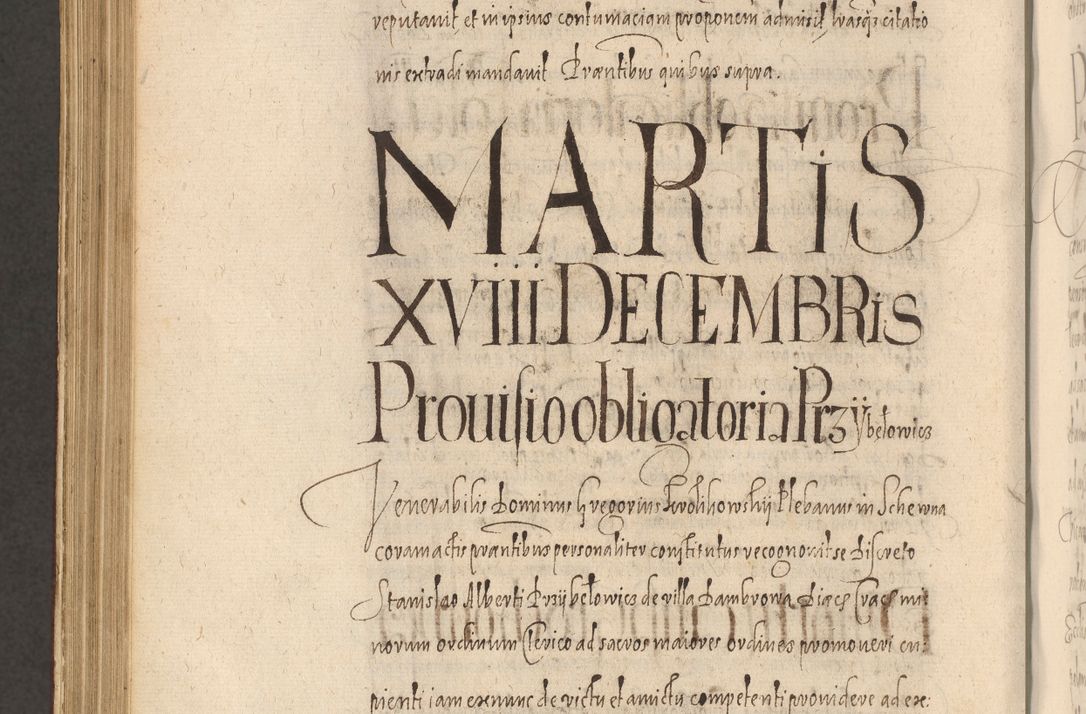 reputavit, et in ipsius contumaciam proponem admisit, huiusqz citatio
nis extradi mandavit Præntibus quibus supra.
MARTiS
XVIII DECEMBRis
Prouisio obligatoria Przÿbełowicz
Venerabilis Dominus Gregorius Krolikowskij Plebanus in Schewna
coram actis præntibus personaliter constitutus recognovit se discreto
Stanislao Alberti Przÿbełowicz de villa Dambrowa Diæces Cracs mi:
norum ordinum Clerico ad sacros maiores ordines promoveri cu:
pienti iam ex nunc de victu et amictu competenti providere ad ex: